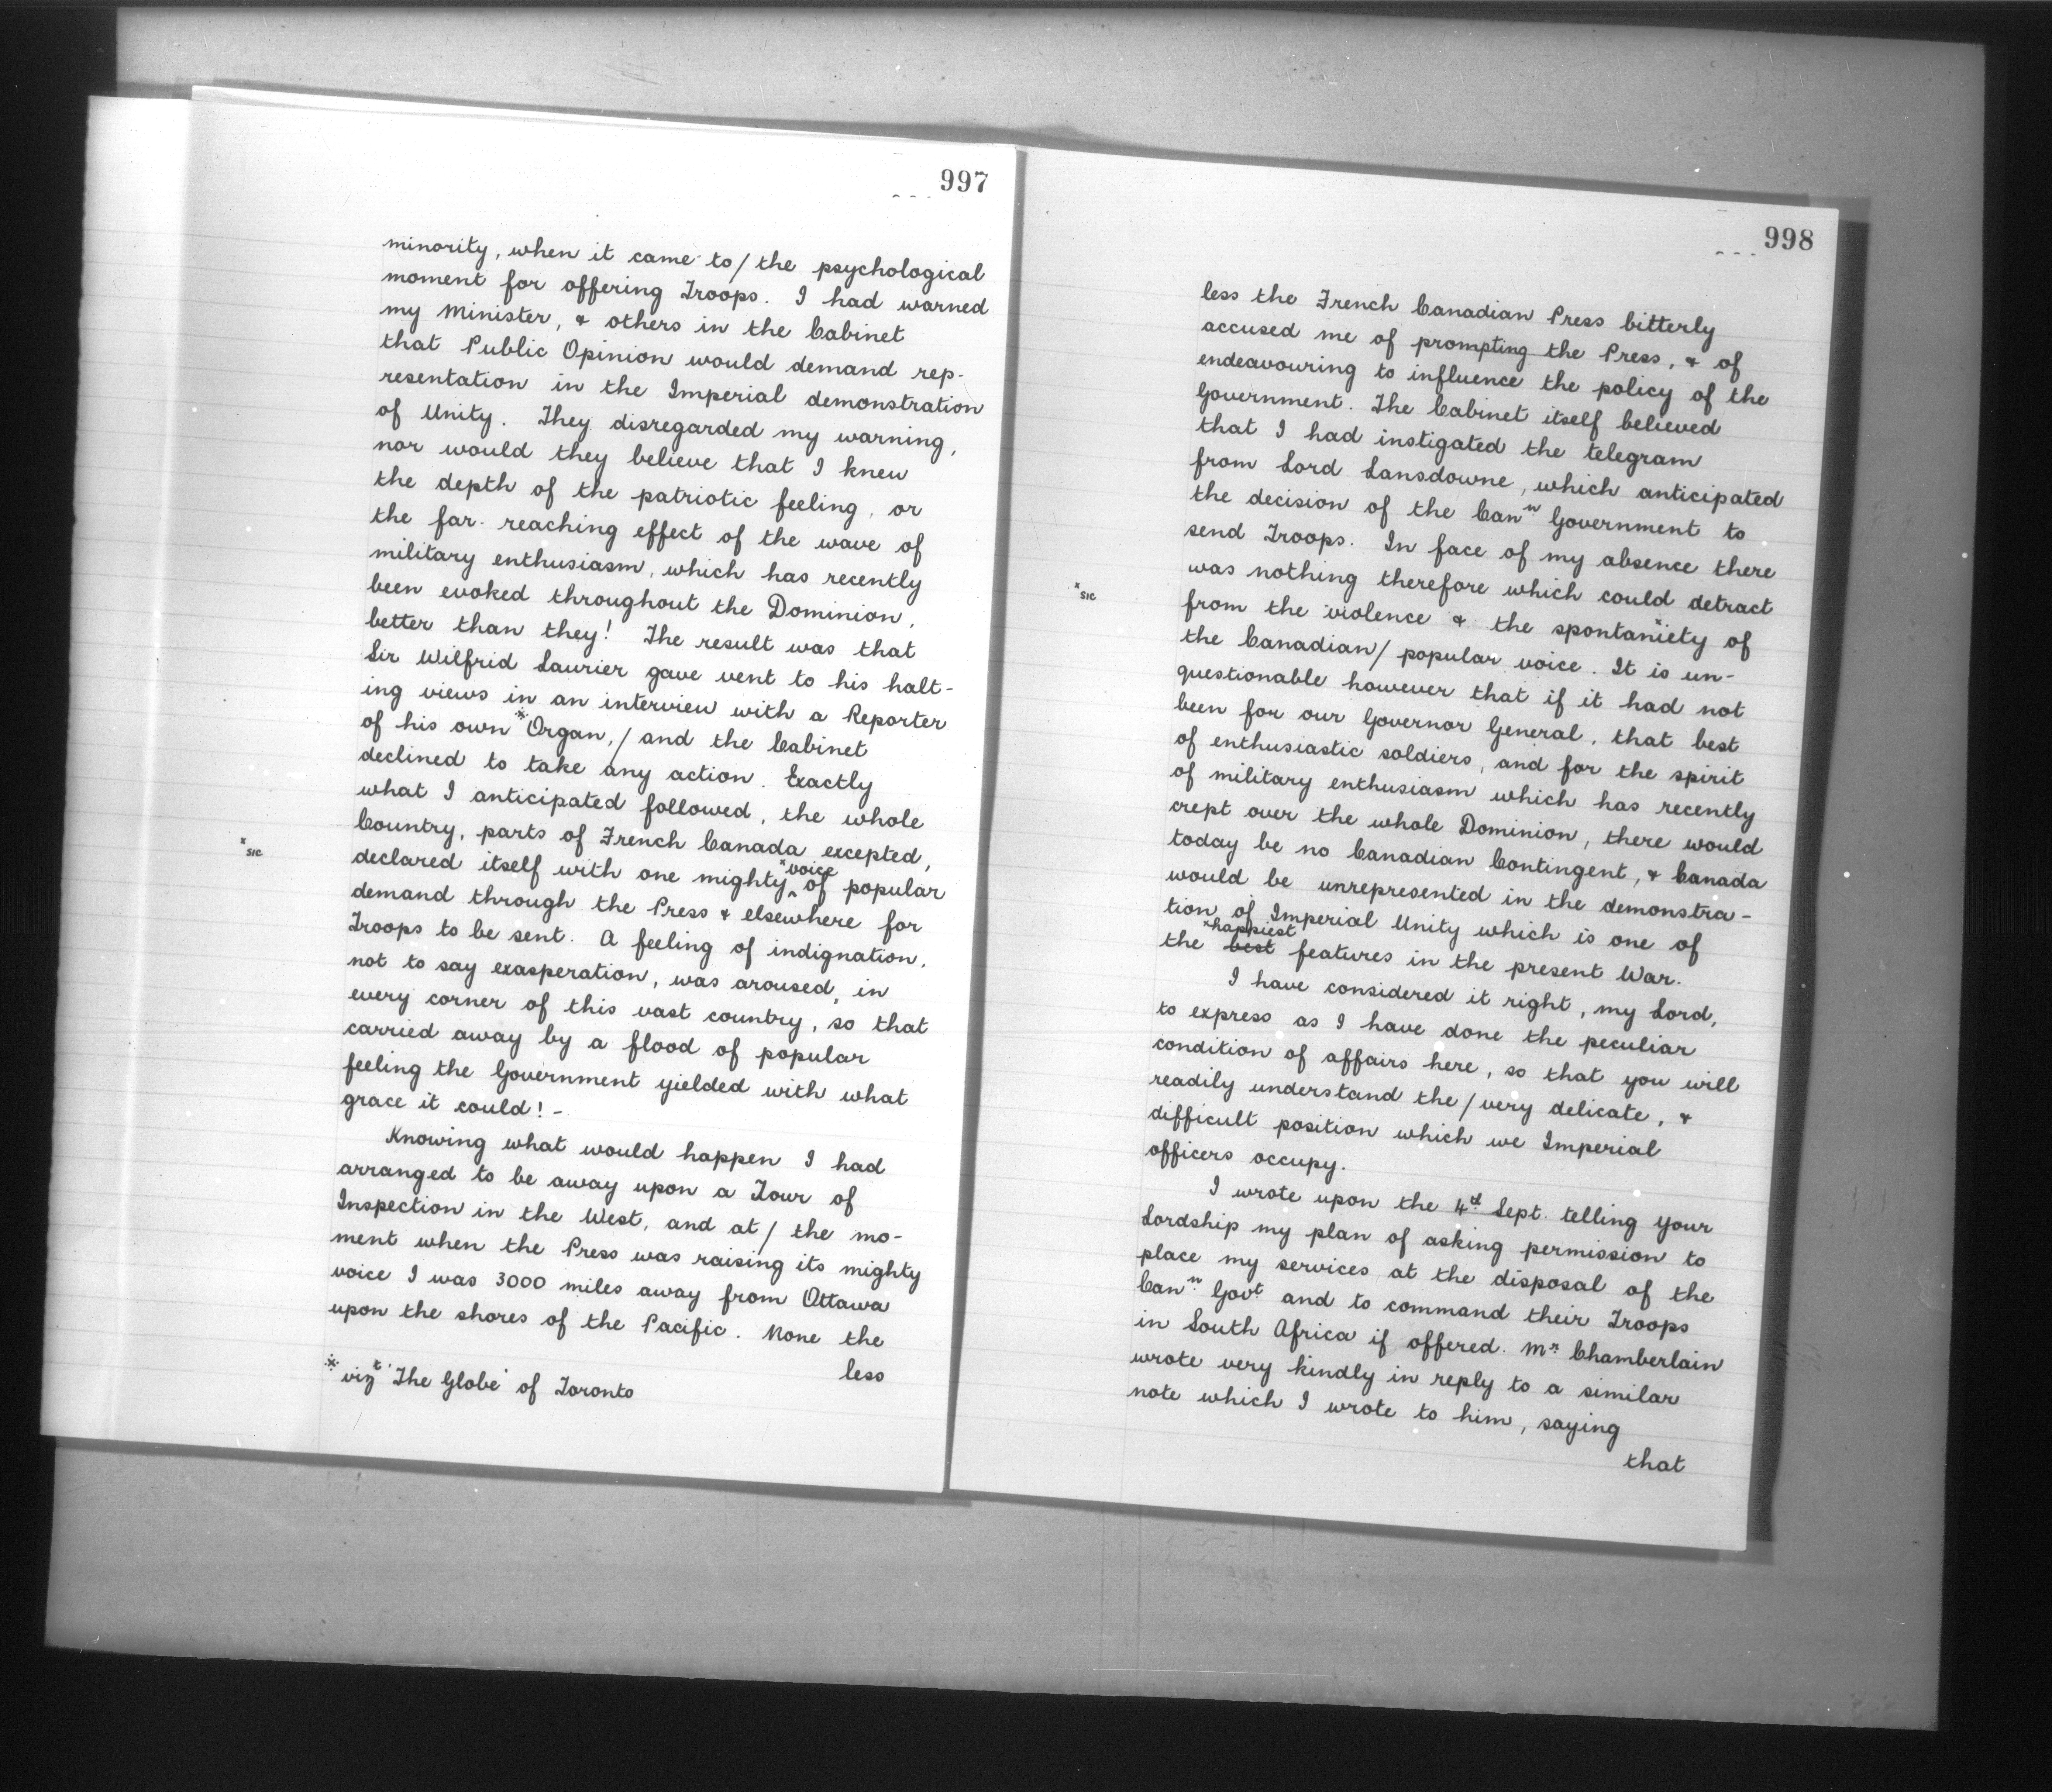 997
minority, when it came to / the psychological
moment for offering Troops. I had warned
my Minister, & others in the Cabinet
that Public Opinion would demand rep-
resentation in the Imperial demonstration
of Unity. They disregarded my warning,
nor would they believe that I knew
the depth of the patriotic feeling, or
the far-reaching effect of the wave of
military enthusiasm, which has recently
been evoked throughout the Dominion,
better than they! The result was that
Sir Wilfrid Laurier gave vent to his halt-
ing views in an interview with a Reporter
of his own * Organ, / and the Cabinet
declined to take any action. Exactly
what I anticipated followed, the whole
Country, parts of French Canada excepted,
x sic
declared itself with one mighty ^ x voice of popular
demand through the Press & elsewhere for
Troops to be sent. A feeling of indignation,
not to say exasperation, was aroused, in
every corner of this vast country, so that
carried away by a flood of popular
feeling the Government yielded with what
grace it could! -
Knowing what would happen I had
arranged to be away upon a Tour of
Inspection in the West, and at / the mo-
ment when the Press was raising its mighty
voice I was 3000 miles away from Ottawa
upon the shores of the Pacific. None the
less
* vizt 'The Globe' of Toronto
998
less the French Canadian Press bitterly
accused me of prompting the Press, & of
endeavouring to influence the policy of the
Government. The Cabinet itself believed
that I had instigated the telegram
from Lord Lansdowne, which anticipated
the decision of the Cann Government to
send Troops. In face of my absence there
was nothing therefore which could detract
x sic
from the violence & the spontanxiety of
the Canadian / popular voice. It is un-
questionable however that if it had not
been for our Governor General, that best
of enthusiastic soldiers, and for the spirit
of military enthusiasm which has recently
crept over the whole Dominion, there would
today be no Canadian Contingent, & Canada
would be unrepresented in the demonstra-
tion of Imperial Unity which is one of
x happiest
the best features in the present War.
I have considered it right, my Lord,
to express as I have done the peculiar
condition of affairs here, so that you will
readily understand the / very delicate, &
difficult position which we Imperial
officers occupy.
I wrote upon the 4th Sept. telling your
Lordship my plan of asking permission to
place my services at the disposal of the
Cann Govt and to command their Troops
in South Africa if offered. Mr. Chamberlain
wrote very kindly in reply to a similar
note which I wrote to him, saying
that